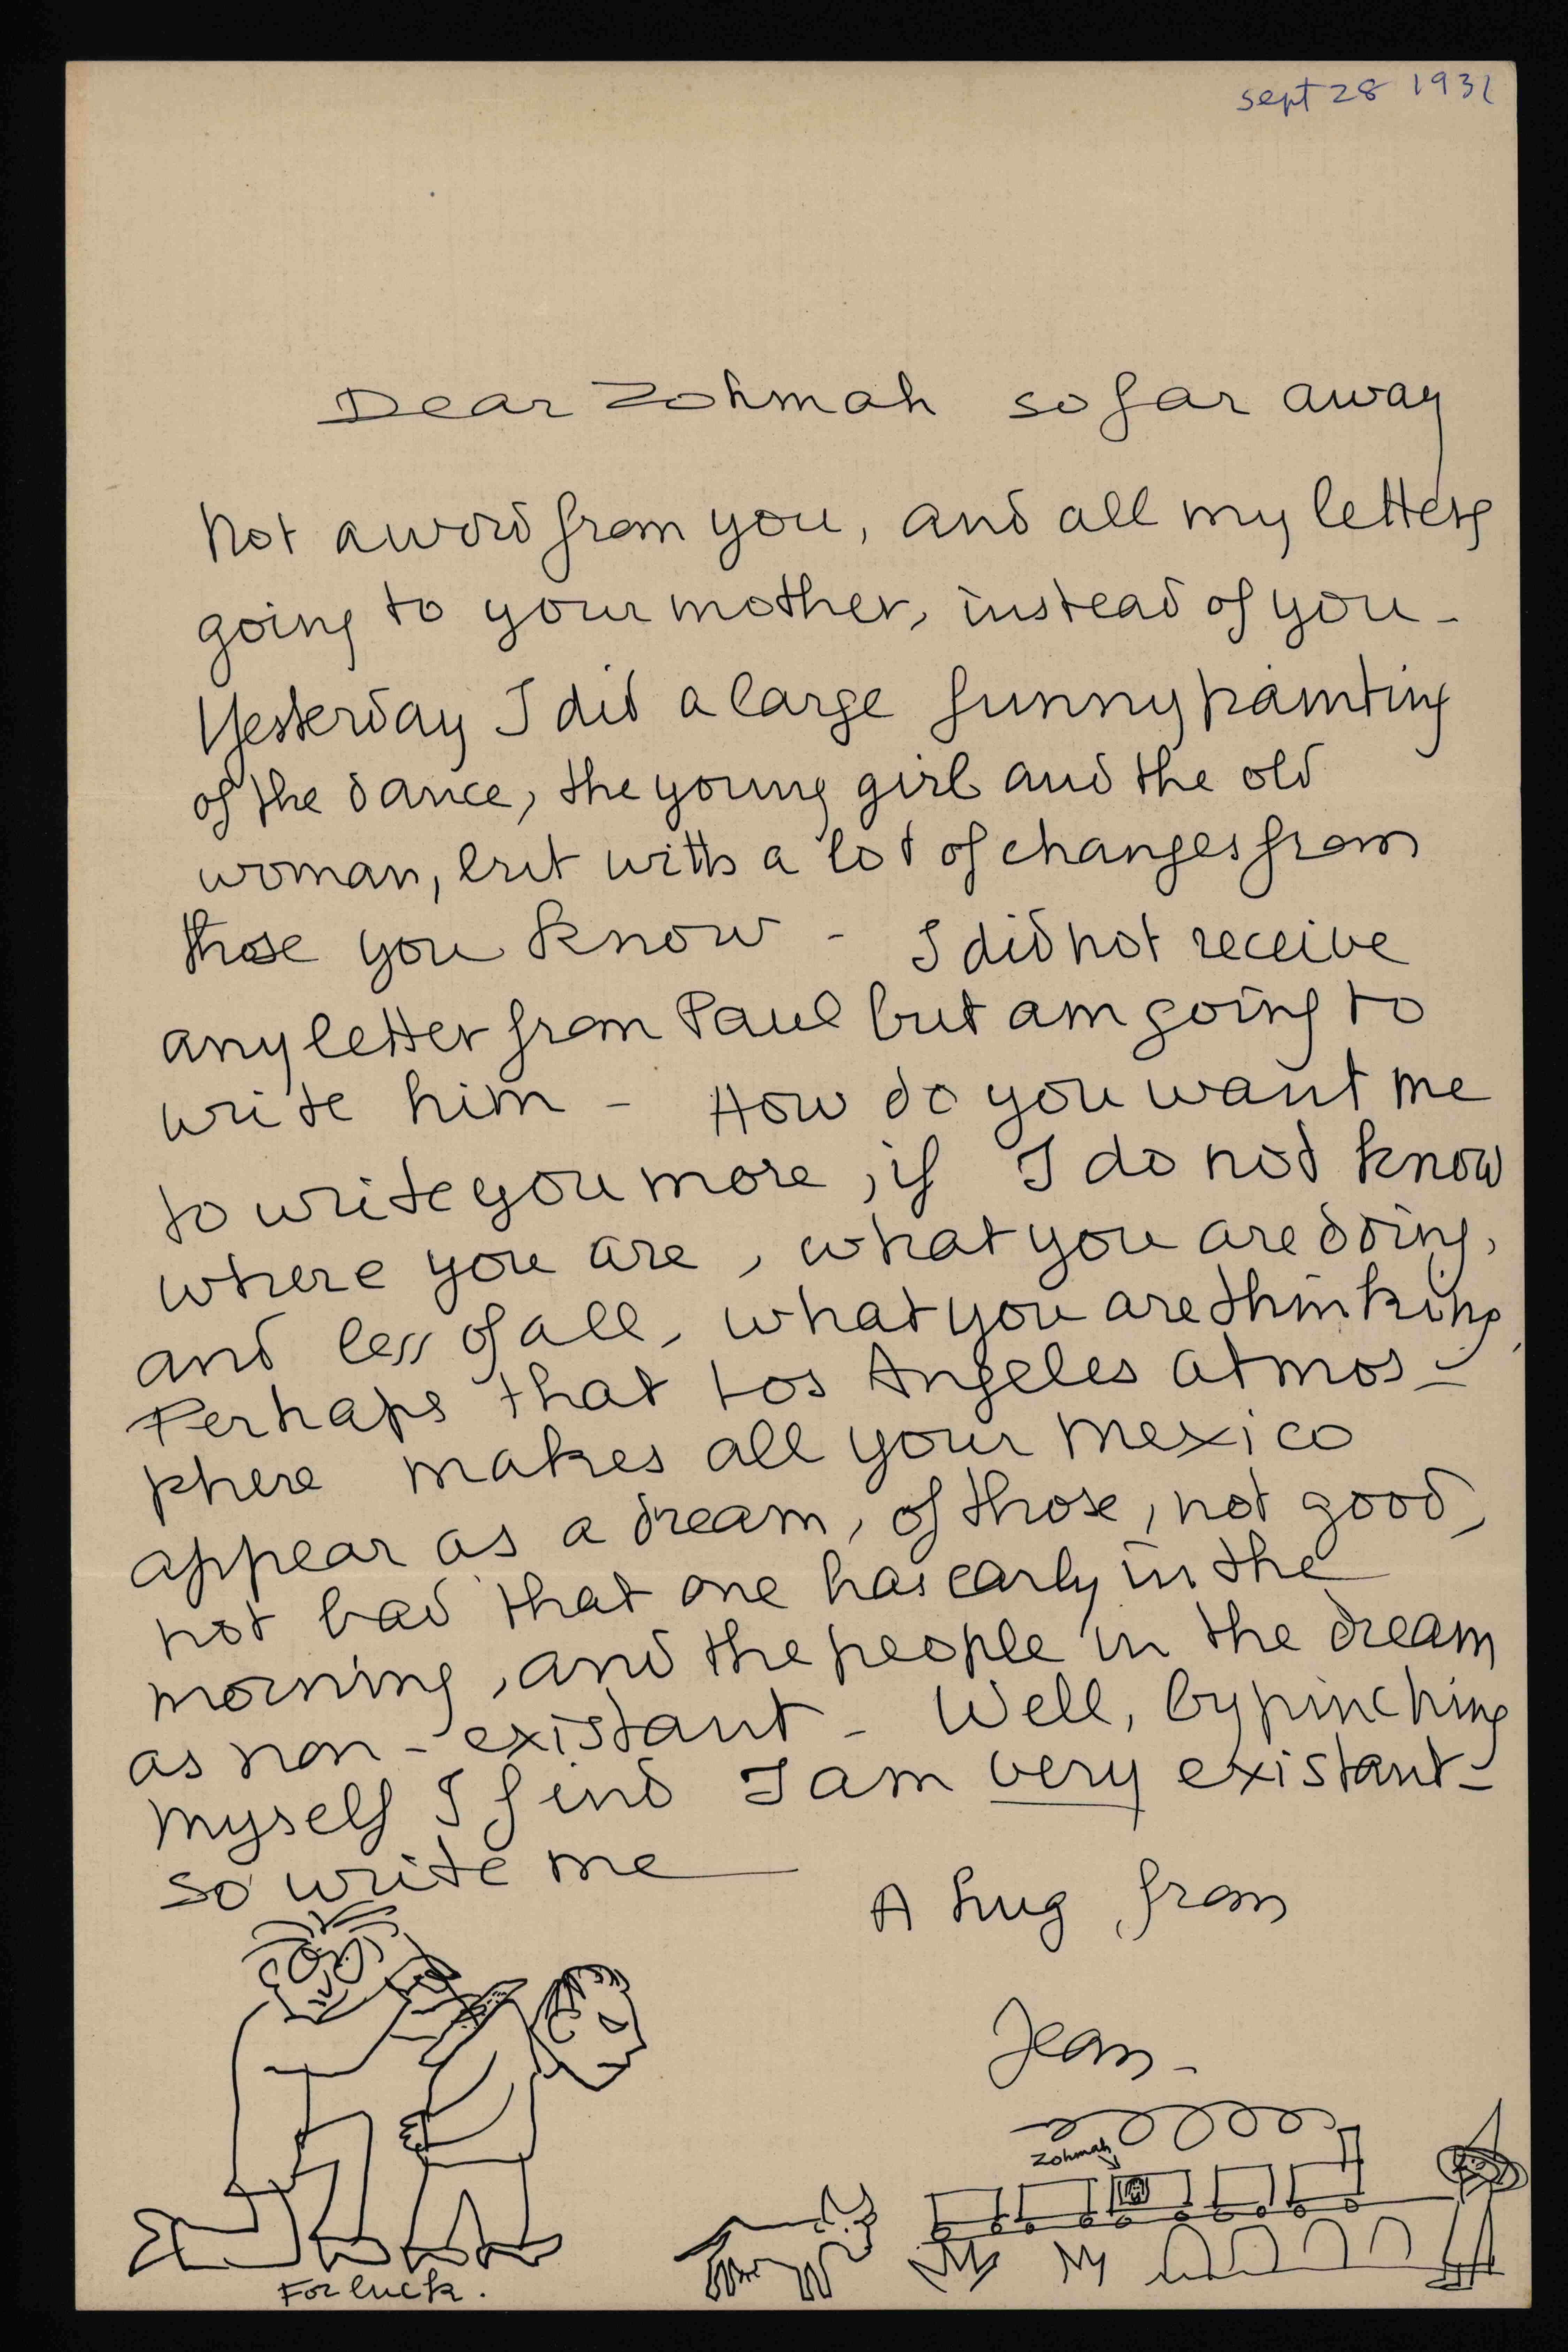 sept 28 1931
Dear Zohmah so far away
Not a word from you, and all my letters
going to your mother, instead of you -
Yesterday I did a large funny painting
of the dance, the young girl and the old
woman, but with a lot of changes from
those you know - I did not receive
any letter from Paul but am going to
write him - How do you want me
to write you more, if I do not know
where you are, what you are doing,
and less of all, what you are thinking.
Perhaps that Los Angeles atmos-
phere makes all your Mexico
appear as a dream, of those, not good,
not bad that one has early in the
morning, and the people in the dream
as non-existant - Well, by pinching
myself I find I am very existant -
so write me
A hug from
Jean -
Zohmah
For luck.